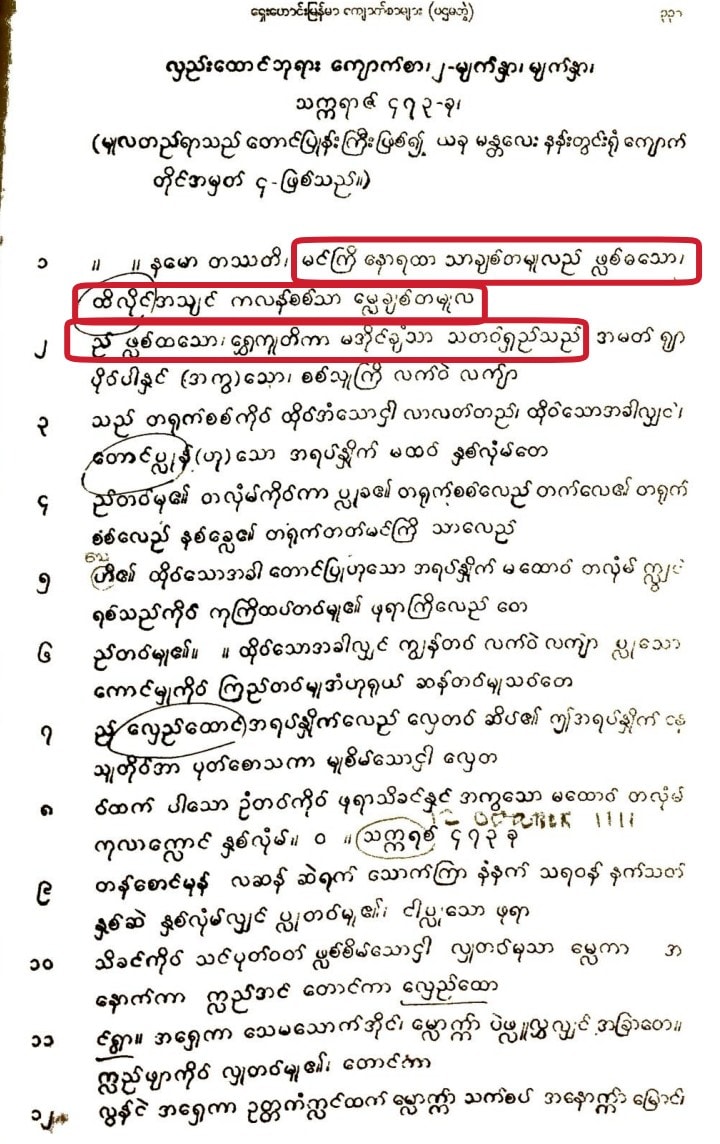 ရှေးဟောင်းမြန်မာ ကျောက်စာများ (ပဌမတွဲ) ၃၃၁
လှည်းထောင်ဘုရား ကျောက်စာ၊ ၂-မျက်နှာ၊ မျက်နှာ၊
သက္ကရာဇ် ၄၇၃-ခု၊
(မူလတည်ရာသည် တောင်ပြုန်းကြီးဖြစ်၍ ယခု မန္တလေး နန်းတွင်းရုံ ကျောက်
တိုင်အမှတ် ၄-ဖြစ်သည်။)
၁ ။ ။ နမော တဿတိ၊ မင်ကြိ နောရထာ သာချစ်တမူလည် ဖ္လစ်ထသော၊
ထိလိုင် အသျင် ကလန်စစ်သာ မ္လေချစ်တမူလ
၂ ည် ဖ္လစ်ထသော၊ ရွှေကူတိကာ မအိုင်ချံသာ သတဝ်ရှည်သည် အမတ် ရှာ
ပိုဝ်ပါနှင် (အကွ)သော၊ စစ်သူကြိ လက်ဝဲ လက်ျာ
၃ သည် တရုက်စစ်ကိုဝ် ထိုဝ်အံသောငှါ လာလတ်တည်၊ ထိုဝ်သောအခါလျှင်၊
တောင်ပ္လုန် (ဟု)သော အရပ်နှိုက် မထဝ် နှစ်လုံမ်တေ
၄ ည်တဝ်မူ၏ တလုံမ်ကိုဝ်ကာ ပ္လုခ၏ တရုက်စစ်လေည် တက်လေ၏ တရုက်
စစ်လေည် နစ်ခ္လေ၏ တရုက်တတ်မင်ကြိ သာလေည်
၅ ဟိ၏ ထိုဝ်သောအခါ တောင်ပြုဟုသော အရပ်နှိုက် မထောဝ် တလုံမ်
ရစ်သည်ကိုဝ် ကုကြိထပ်တဝ်မူ၏ ဖုရာကြိလေည် တေ
၆ ည်တဝ်မူ၏။ ။ ထိုဝ်သောအခါလျှင် ကျွန်တဝ် လက်ဝဲ လကျာ ပ္လုသော
ကောင်မှုကိုဝ် ကြည်တဝ်မူအံဟုရုယ် ဆန်တဝ်မူသဝ်တေ
၇ ည် လှေည်ထောင် အရပ်နှိုက်လေည် လှေတဝ် ဆိပ်၏ ဤအရပ်နှိုက် နေ
သူတိုဝ်အာ ပုတ်စောသကာ မူစိမ်သောငှါ လှေတ
၈ ဝ်ထက် ပါသော ဦတဝ်ကိုဝ် ဖုရာသိခင်နှင် အကွသော မထောဝ် တလုံမ်
12 OCTOBER 1111
ကုလာက္လောင် နှစ်လုံမ်။ ၀ ။ သက္ကရစ် ၄၇၃ ခု
၉ တန်စောင်မုန် လဆန် ဆဲရက် သောက်ကြာ နံနက် သရဝန် နက်သတ်
နှစ်ဆဲ နှစ်လုံမ်လျှင် ပ္လုတဝ်မူ၏၊ ငါပ္လုသော ဖုရာ
၁၀ သိခင်ကိုဝ် သင်ပုတ်ဝတ် ဖ္လစ်စိမ်သောငှါ လှူတဝ်မူသာ မ္လေကာ အ
နောက်ကာ က္လည်အင် တောင်ကာ လှေည်ထော
၁၁ င်ရွာ။ အရှေကာ သေမသောက်အိုင်၊ မ္လောက်ကာ ပဲဖ္လူလွှလျှင် အခြာတေ။
က္လည်ဖျာကိုဝ် လှူတဝ်မူ၏၊ တောင်ကာ
၁၂ လွန်ငဲ အရှေကာ ဥတ္တကံက္လင်ထက် မ္လောက်ကာ သက်စပ် အနောက်ကာ မြောင်၊